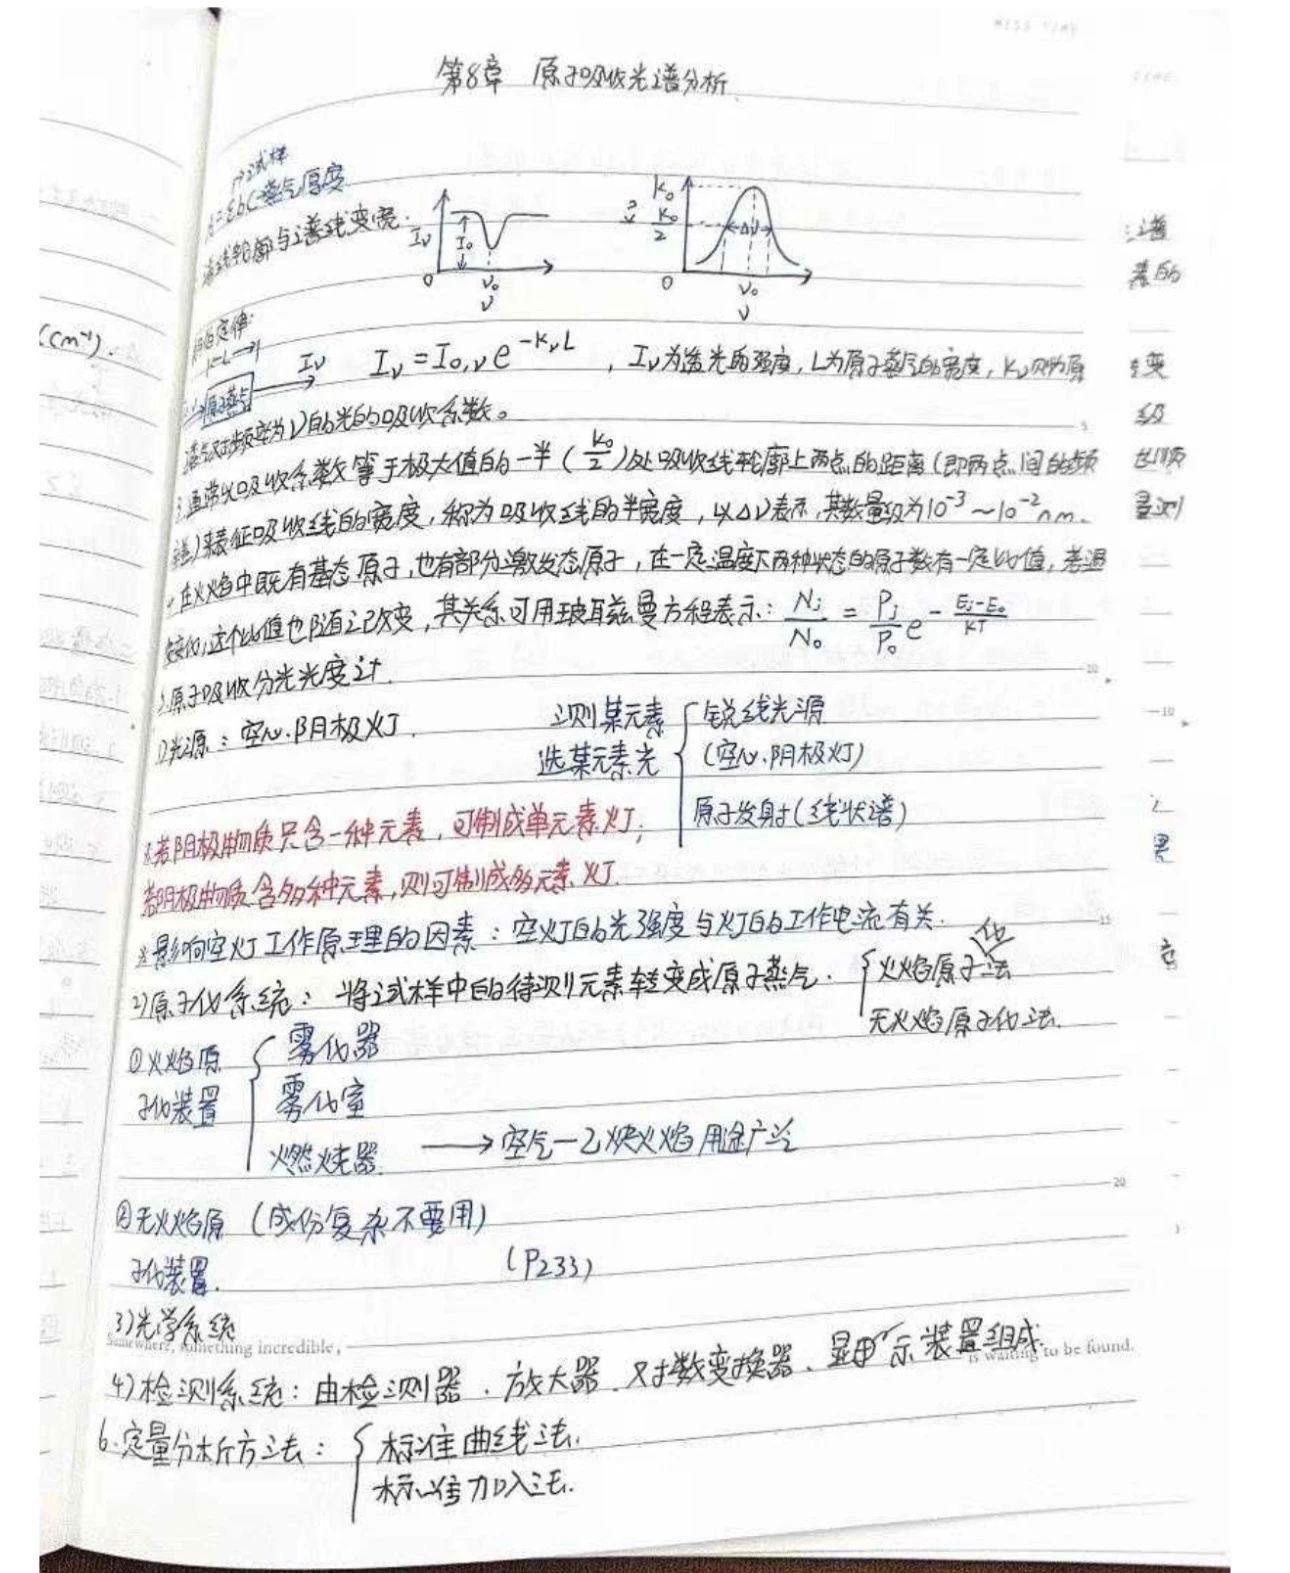 第8章 原子吸收光谱分析
→试样
A=εbC 蒸气厚度
谱线轮廓与谱线变宽.
Iν I₀ 0 ν₀ ν
Kν K₀ K₀/2 Δν 0 ν₀ ν
朗伯定律:
|←L→|
原子蒸气 Iν Iν = I₀,ν e^(-KνL) , Iν为透光的强度, L为原子蒸气的宽度, Kν则为原
蒸气对频率为ν的光的吸收系数。
3.通常以吸收系数等于极大值的一半(K₀/2)处吸收线轮廓上两点的距离(即两点间的频
率差)来表征吸收线的宽度, 称为吸收线的半宽度, 以Δν表示,其数量级为10⁻³~10⁻²nm.
在火焰中既有基态原子,也有部分激发态原子, 在一定温度下两种状态的原子数有一定比值, 若温
度变化,这个比值也随之改变, 其关系可用玻耳兹曼方程表示: Nj/N₀ = Pj/P₀ e - (Ej-E₀)/KT
原子吸收分光光度计.
1)光源: 空心阴极灯.
测某元素
选某元素光
{ 锐线光源
(空心阴极灯)
原子发射(线状谱)
※若阴极物质只含一种元素, 可制成单元素灯;
若阴极物质含多种元素,则可制成多元素灯.
※影响空灯工作原理的因素: 空灯的光强度与灯的工作电流有关.
2)原子化系统: 将试样中的待测元素转变成原子蒸气. { 火焰原子化法
无火焰原子化法.
①火焰原
子化装置
{ 雾化器
雾化室
燃烧器. → 空气—乙炔火焰 用途广泛
②无火焰原 (成份复杂不要用)
子化装置.
(P233)
3)光学系统
Somewhere, something incredible, is waiting to be found.
4)检测系统: 由检测器、放大器、对数变换器、显示装置组成.
6.定量分析方法: { 标准曲线法.
标准加入法.
(cm⁻¹).
谱
量测
5
10
15
20